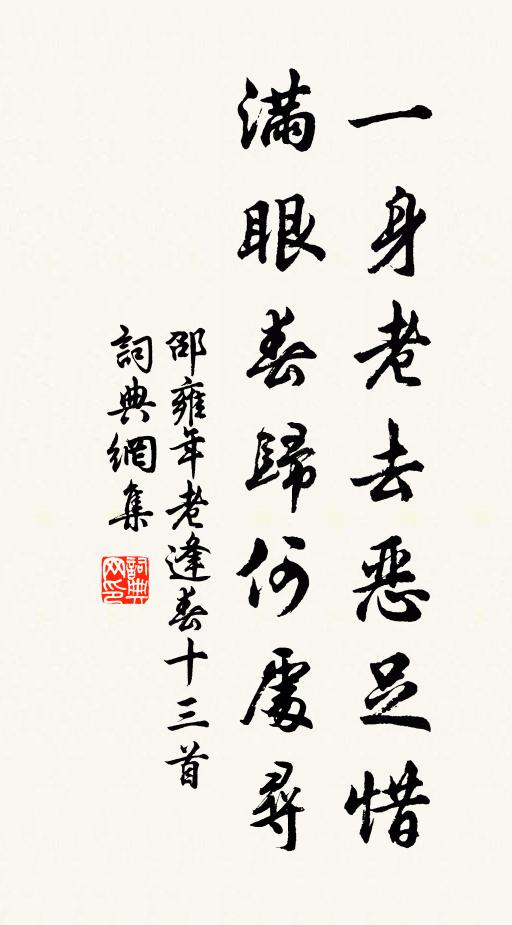 一身老去惡足惜
滿眼春歸何處尋
邵雍年老逢春十三首
詞典網集
詞典网印